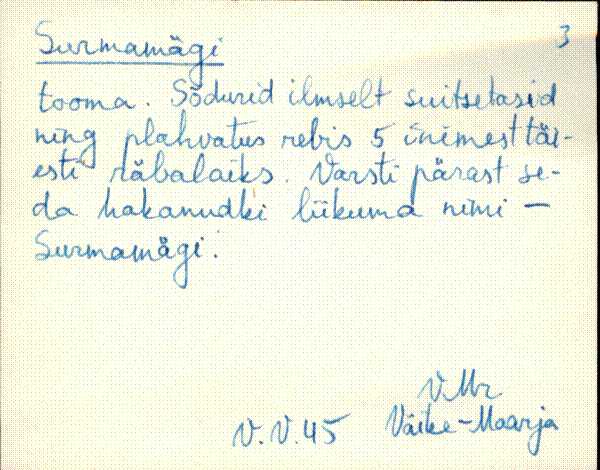 Surmamägi
3
tooma. Sõdurid ilmselt suitsetasid
ning plahvatus rebis 5 inimest täi-
esti räbalaiks. Varsti pärast se-
da hakanudki liikuma nimi —
Surmamägi.
V. Mr
V.V.45 Väike-Maarja